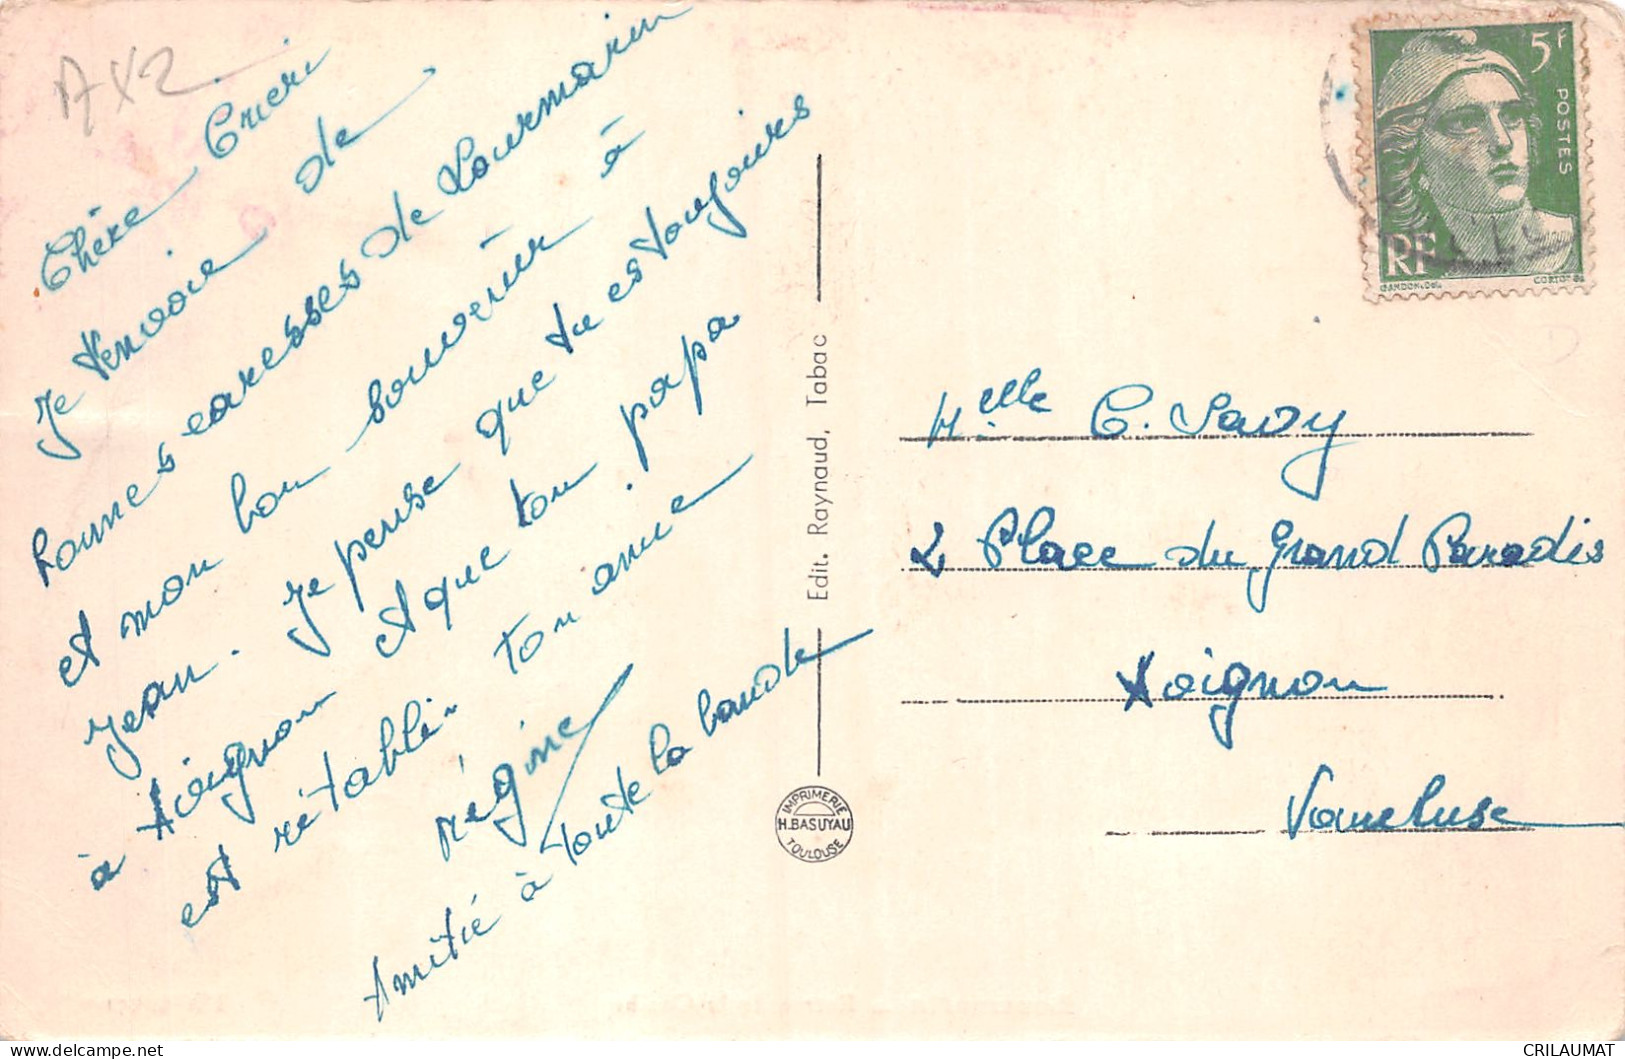 AX2
Chère Crieri
Je t'envoie de
bonnes caresses de Lourmarin
et mon bon souvenir à
Jean. Je pense que tu es toujours
à Avignon et que ton papa
est rétabli. Ton amie
Régine
Amitié à toute la bande
Edit. Raynaud, Tabac
IMPRIMERIE
H. BASUYAU
TOULOUSE
5F
POSTES
RF
GANDON DEL.
Melle C. Savy
2 Place du Grand Paradis
Avignon
Vaucluse
CRILAUMAT